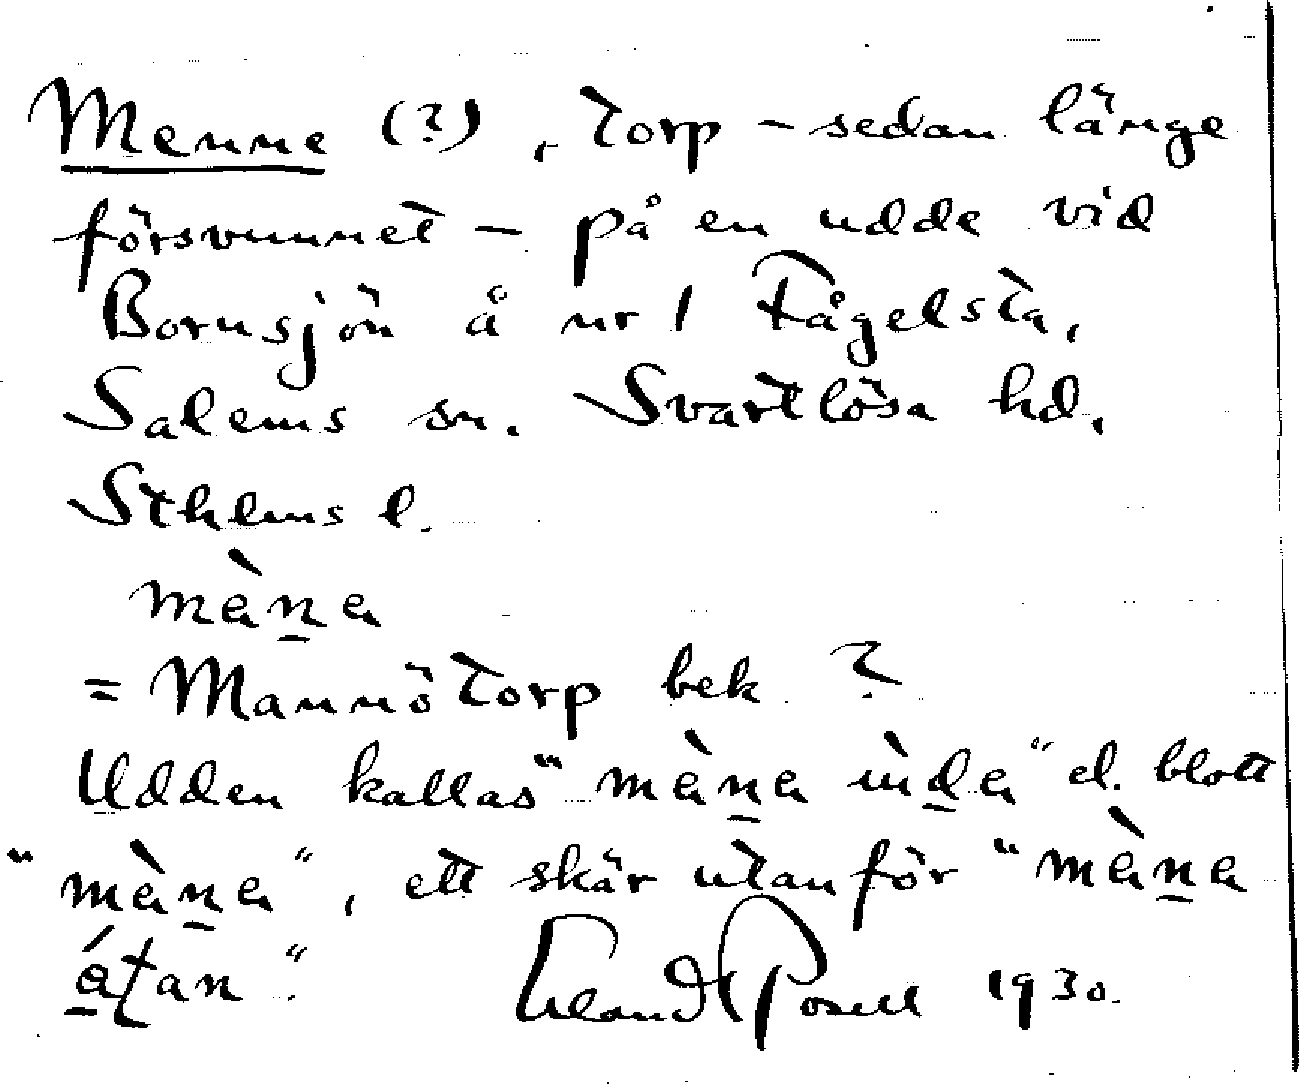 Menne (?), torp - sedan länge
försvunnet - på en udde vid
Bornsjön å nr 1 Fågelsta,
Salems sn. Svartlösa hd,
Sthlms l.
mèṉa
= Mannötorp bek ?
Udden kallas "mèṉa ùḏa" el. blott
"mèṉa", ett skär utanför "mèṉa
Erland Rosell 1930.